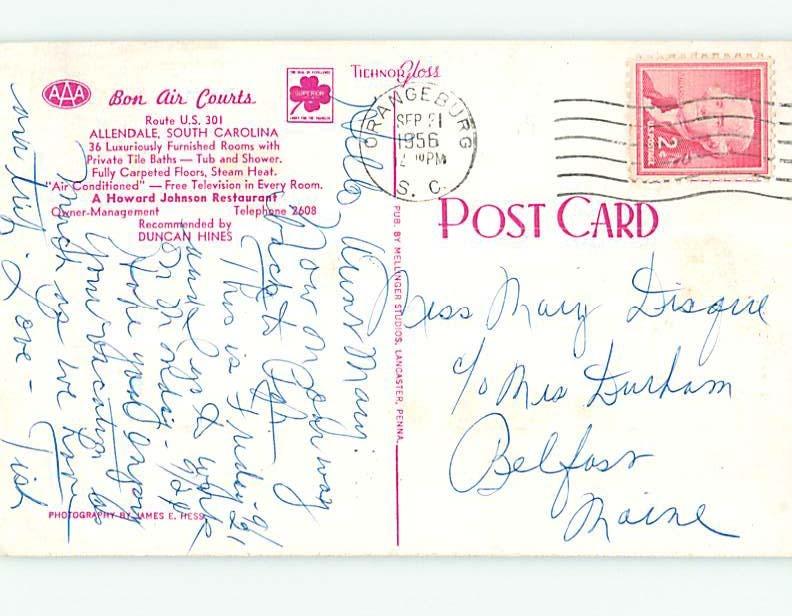 AAA
Bon Air Courts
THE SEAL OF EXCELLENCE
SUPERIOR
Route U.S. 301
ALLENDALE, SOUTH CAROLINA
36 Luxuriously Furnished Rooms with
Private Tile Baths — Tub and Shower.
Fully Carpeted Floors, Steam Heat.
"Air Conditioned" — Free Television in Every Room.
A Howard Johnson Restaurant
Owner-Management Telephone 2608
Recommended by
DUNCAN HINES
PHOTOGRAPHY BY JAMES E. HESS
TICHNOR Gloss
PUB. BY MELLINGER STUDIOS, LANCASTER, PENNA.
ORANGEBURG
SEP 21
1956
PM
S. C.
U.S. POSTAGE
2¢
POST CARD
Hello Aunt Mary:
Now on our way
back to
This is Friday
and up to work
on Monday. We
Hope you enjoy
your vacation as
much as we have
our trip. Love –
Miss Mary Disque
c/o Mrs Durham
Belfast
Maine